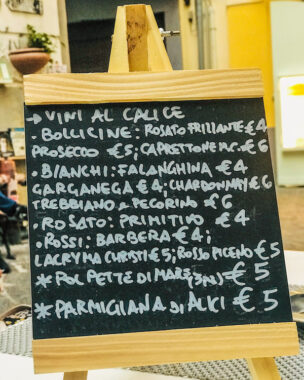 → VINI AL CALICE
• BOLLICINE: ROSATO FRIZZANTE €4
PROSECCO €5; CAPRETTONE M.C. €6
• BIANCHI: FALANGHINA €4
GARGANEGA €4; CHARDONNAY €6
TREBBIANO e PECORINO €6
• ROSATO: PRIMITIVO €4
• ROSSI: BARBERA €4;
LACRYMA CHRISTI €5; ROSSO PICENO €5
* POLPETTE DI MARE (3PZ) €5
* PARMIGIANA di ALICI €5